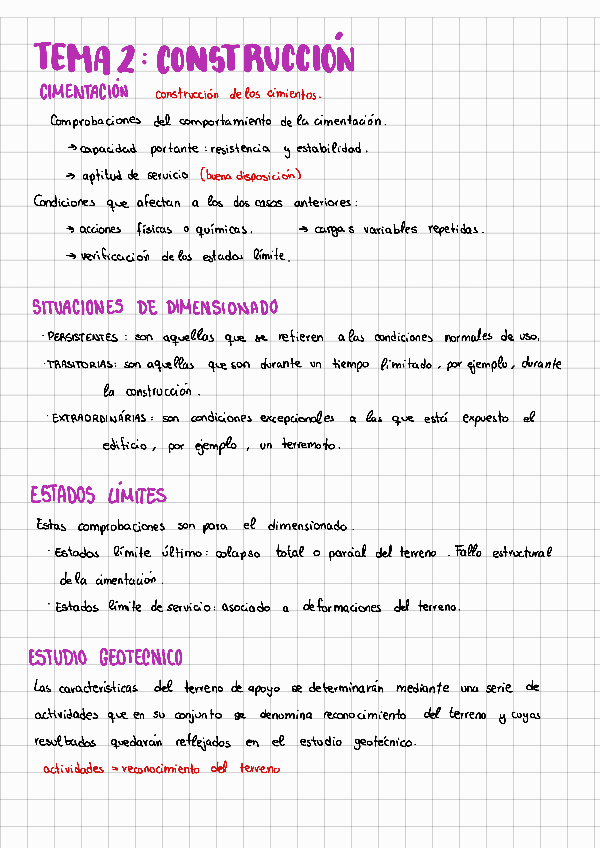 TEMA 2: CONSTRUCCIÓN
CIMENTACIÓN construcción de los cimientos.
Comprobaciones del comportamiento de la cimentación.
→ capacidad portante: resistencia y estabilidad.
→ aptitud de servicio (buena disposición)
Condiciones que afectan a los dos casos anteriores:
→ acciones físicas o químicas. → cargas variables repetidas.
→ verificación de los estados límite.
SITUACIONES DE DIMENSIONADO
· PERSISTENTES: son aquellas que se refieren a las condiciones normales de uso.
· TRASITORIAS: son aquellas que son durante un tiempo limitado, por ejemplo, durante
la construcción.
· EXTRAORDINÁRIAS: son condiciones excepcionales a las que está expuesto el
edificio, por ejemplo, un terremoto.
ESTADOS LÍMITES
Estas comprobaciones son para el dimensionado.
· Estados límite último: colapso total o parcial del terreno. Fallo estructural
de la cimentación.
· Estados límite de servicio: asociado a deformaciones del terreno.
ESTUDIO GEOTECNICO
Las características del terreno de apoyo se determinarán mediante una serie de
actividades que en su conjunto se denomina reconocimiento del terreno y cuyos
resultados quedarán reflejados en el estudio geotécnico.
actividades → reconocimiento del terreno